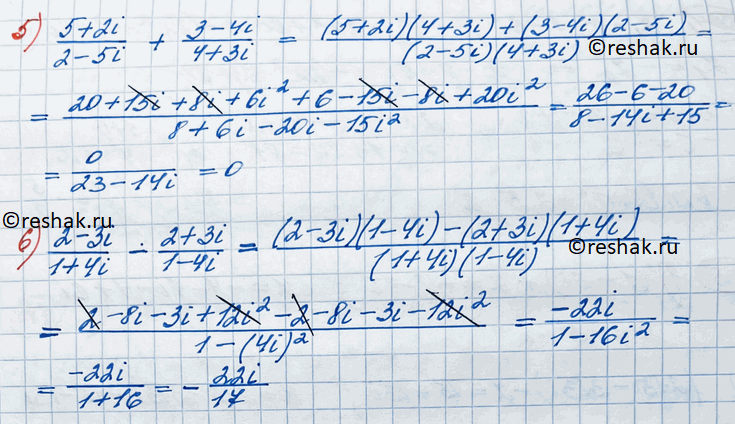 5) (5+2i)/(2-5i) + (3-4i)/(4+3i) = ((5+2i)(4+3i)+(3-4i)(2-5i))/((2-5i)(4+3i)) =
©reshak.ru
= (20+15i+8i+6i²+6-15i-8i+20i²)/(8+6i-20i-15i²) = (26-6-20)/(8-14i+15) =
= 0/(23-14i) = 0
©reshak.ru
6) (2-3i)/(1+4i) - (2+3i)/(1-4i) = ((2-3i)(1-4i)-(2+3i)(1+4i))/((1+4i)(1-4i)) =
©reshak.ru
= (2-8i-3i+12i²-2-8i-3i-12i²)/(1-(4i)²) = (-22i)/(1-16i²) =
= (-22i)/(1+16) = - 22i/17